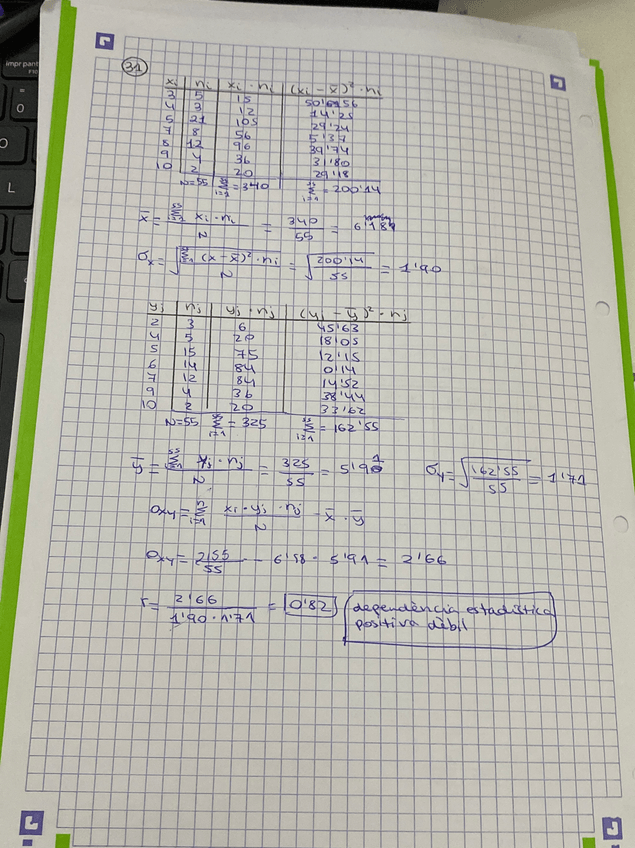 31
xi ni xi · ni (xi - x̄)² · ni
3 5 15 50'6156
4 3 12 14'25
5 21 105 29'24
7 8 56 5'37
8 12 96 39'74
9 4 36 31'80
10 2 20 29'18
N=55 Σ = 340 Σ = 200'14
x̄ = Σ xi · ni / N = 340 / 55 = 6'18
σx = √(Σ (x - x̄)² · ni / N) = √(200'14 / 55) = 1'90
yj nj yj · nj (yj - ȳ)² · nj
2 3 6 45'63
4 5 20 18'05
5 15 75 12'15
6 14 84 0'14
7 12 84 14'52
9 4 36 38'44
10 2 20 33'62
N=55 Σ = 325 Σ = 162'55
ȳ = Σ yj · nj / N = 325 / 55 = 5'91 σy = √(162'55 / 55) = 1'71
σxy = Σ xi · yj · nij / N - x̄ · ȳ
σxy = 2155 / 55 - 6'18 · 5'91 = 2'66
r = 2'66 / 1'90 · 1'71 = 0'82 dependència estadística
positiva dèbil